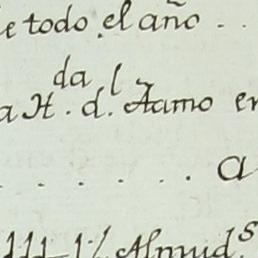 e todo el año . .
da l
a H . d. Tamo en
. . . . . . . a
111 1/2 Almud.s